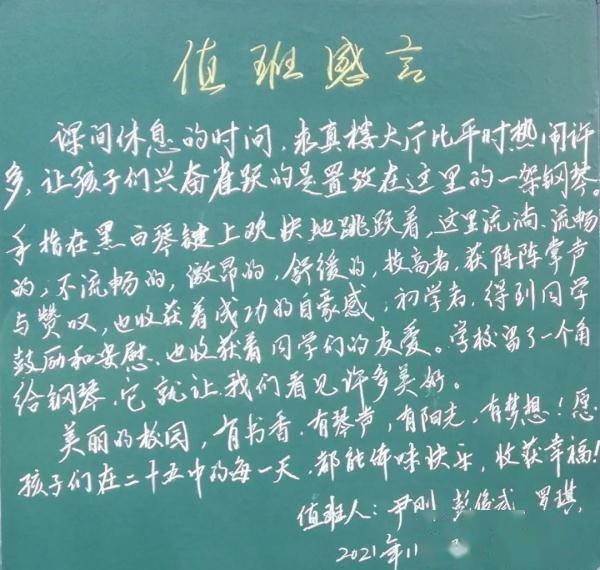 值班感言
课间休息的时间，求真楼大厅比平时热闹许
多，让孩子们兴奋雀跃的是置放在这里的一架钢琴。
手指在黑白琴键上欢快地跳跃着，这里流淌、流畅
的，不流畅的，激昂的，舒缓的，技高者，获阵阵掌声
与赞叹，也收获着成功的自豪感；初学者，得到同学
鼓励和安慰、也收获着同学们的友爱。学校留了一个角
给钢琴，它就让我们看见许多美好。
美丽的校园，有书香，有琴声，有阳光，有梦想！愿
孩子们在二十五中的每一天，都能体味快乐，收获幸福！
值班人：尹刚 彭俊武 罗琪
2021年11